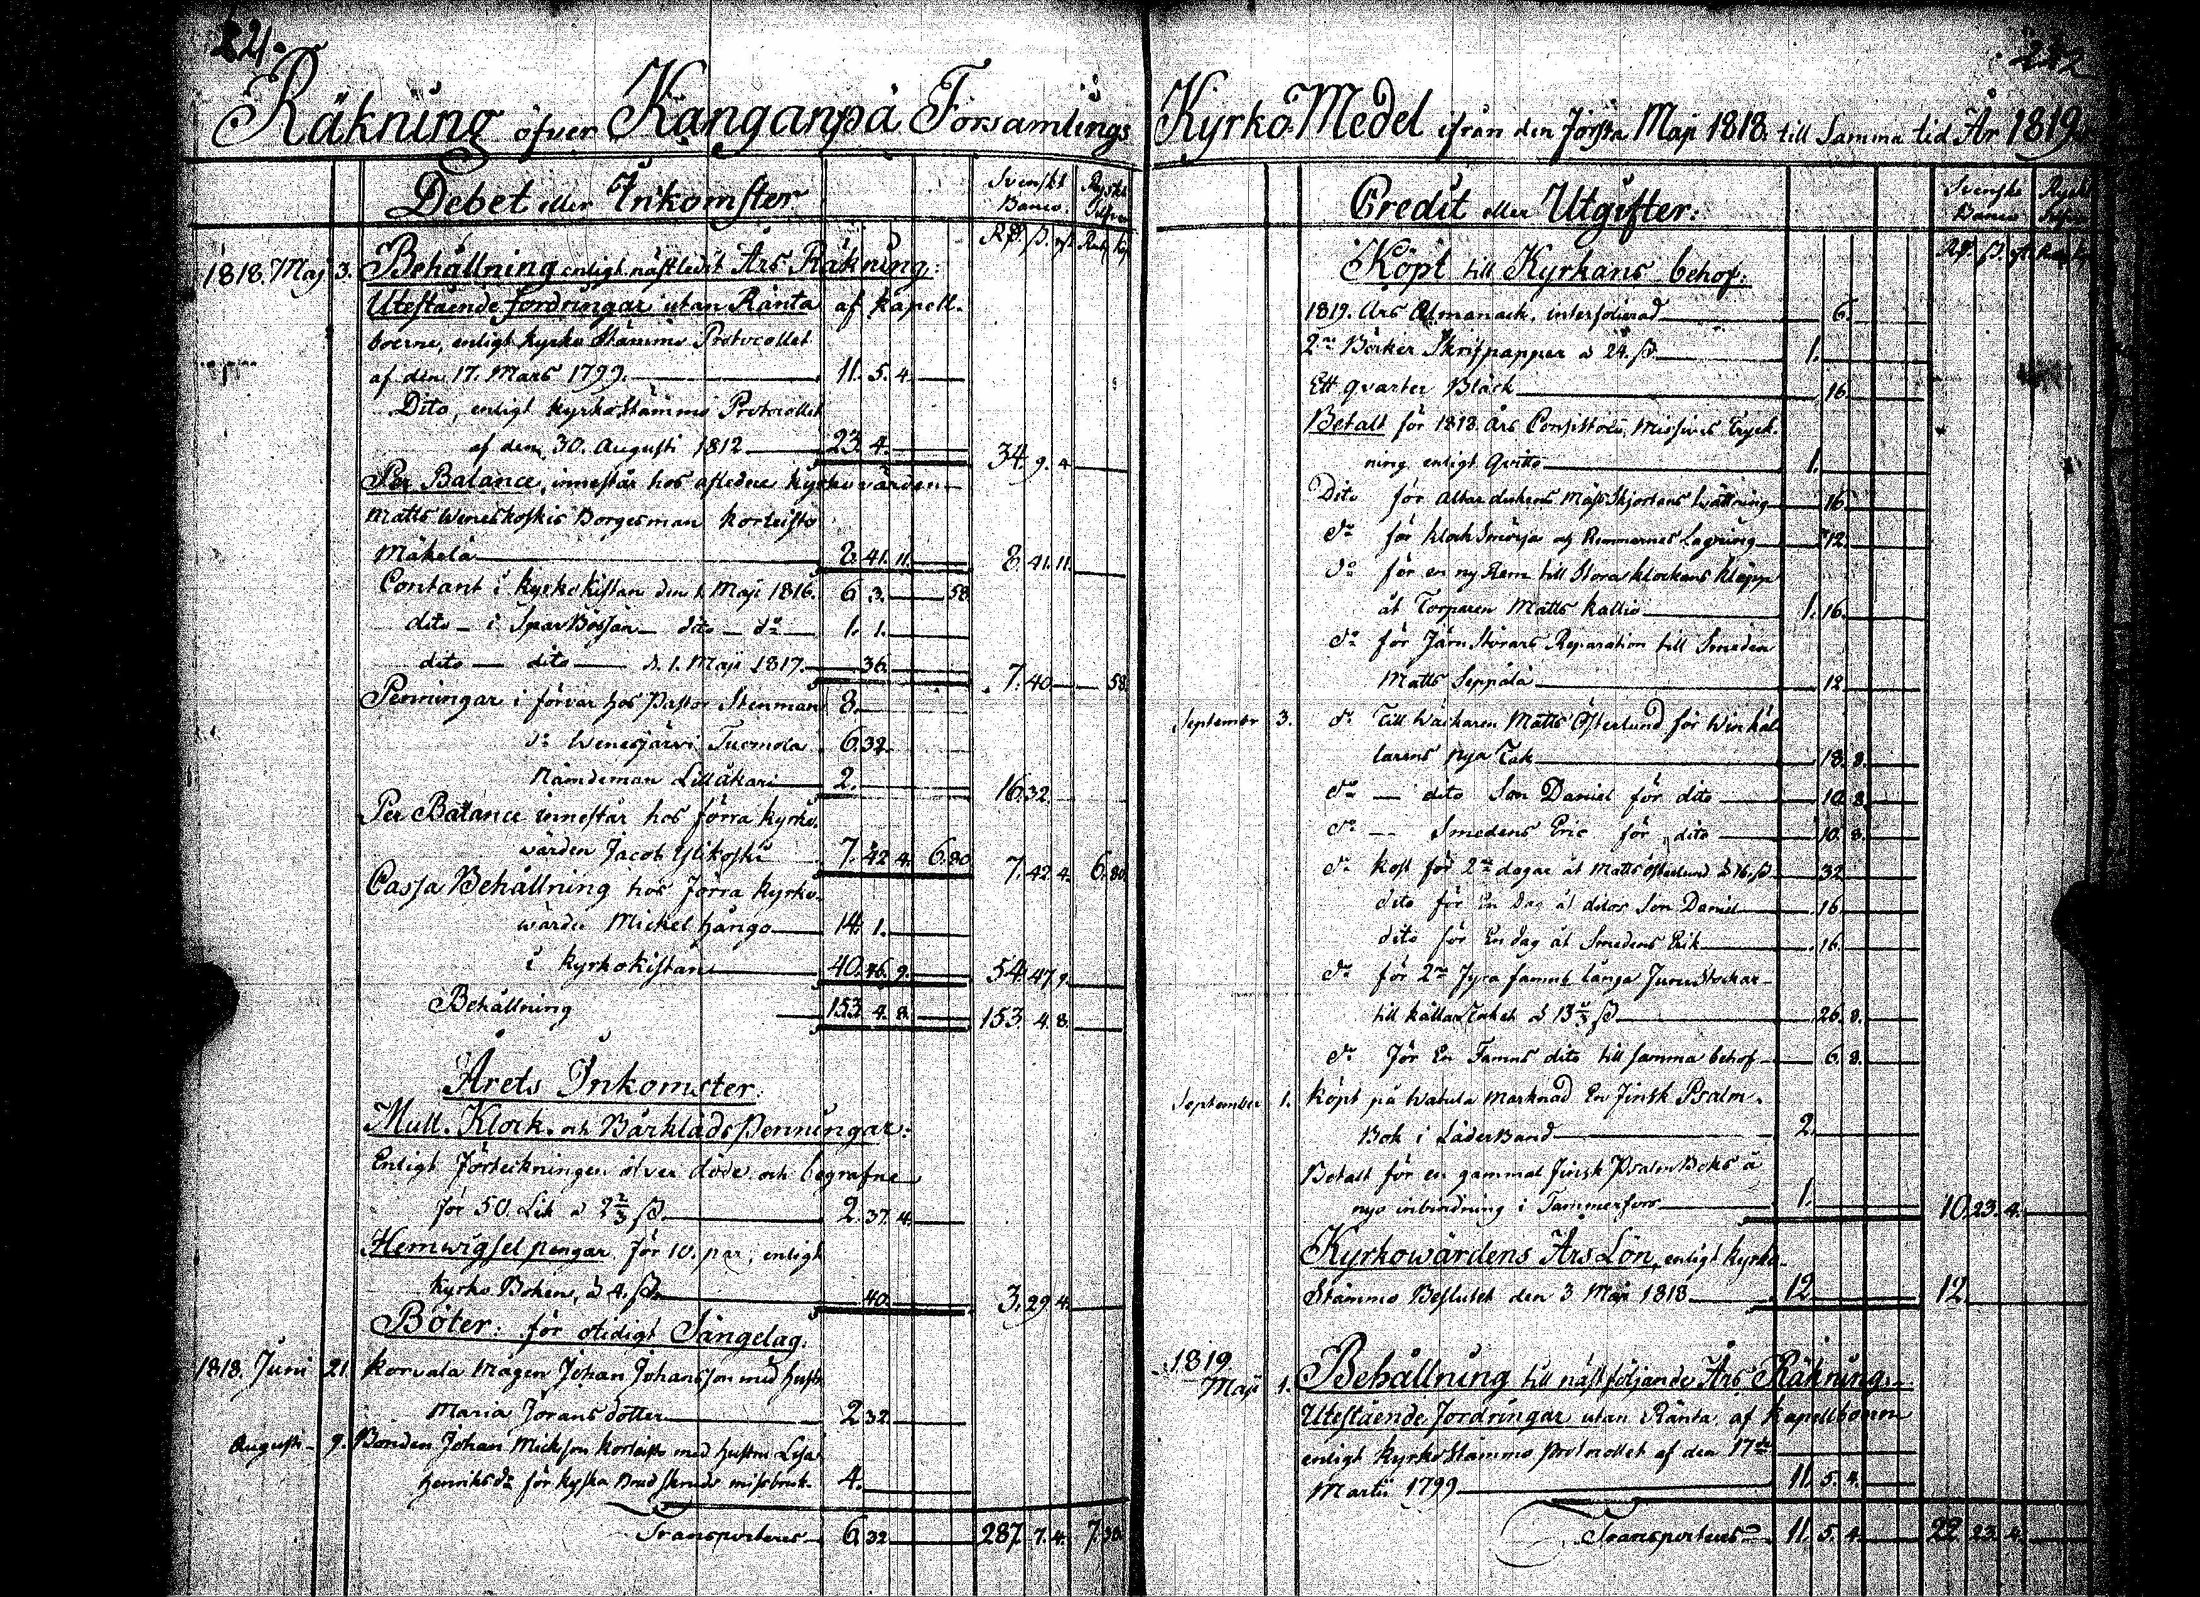 221.
Räkning öfver Kanganpä Församlings
Debet eller Inkomster
Svenskt Banco. Ryskt Silfver
Rd. ß. rst. Rub. Kop
1818. Maj 3. Behållning enligt nästledit Års Räkning:
Utestående fordringar utan Ränta af Kapell-
boerne, enligt Kyrko Stämmo Protocollet
af den 17. Mars 1799. 11. 5. 4.
Dito, enligt Kyrko Stämmo Protocollet
af den 30. Augusti 1812 23. 4. 34. 9. 4.
Per Balance, innestår hos afledne Kyrkovärden
Matts Weneskoskis Borgesman Korteisto
Mäkelä 8. 41. 11. 8. 41. 11.
Contant i Kyrkokistan den 1. Maji 1816. 6 3. 58
dito - i SparBössan - dito - do 1. 1.
dito dito d. 1. Maji 1817. 36. 7. 40 58.
Penningar i förvar hos Pastor Stenman 8.
do Wenesjärvi Tuomola 6 32.
Nämdeman Lilläkari 2. 16. 32.
Per Balance innestår hos förra Kyrko-
wärden Jacob Ylikoski 7. 42 4. 6. 80 7. 42. 4. 6. 80.
Cassa Behållning hos förra Kyrko-
wärden Mickel Hångo 14. 1.
i Kyrkokistan 40. 46. 9. 54. 47. 9.
Behållning 153. 4. 8. 153. 4. 8.
Årets Inkomster.
Mull. Klock. och Bårklädspenningar:
Enligt Förteckningen öfver döde och begrafne
för 50. Lik à 2 2/3 ß. 2. 37. 4.
Hemwigsel pengar för 10. par, enligt
Kyrko Boken, à 4. ß. 40. 3. 29. 4.
Böter: för otidigt Sängelag.
1818. Juni 21. Korvala Mågen Johan Johansson med hustru
Maria Jörans dotter 2 32.
Augusti 9. Bonden Johan Mickson Korteisto med hustru Lisa
Henriksdr för kyska Brud skruds missbruk. 4.
Transporteres 6 32 287. 7. 4. 7. 38.
222
Kyrko Medel ifrån den första Maji 1818. till Samma tid År 1819.
Credit eller Utgifter:
Svenskt Banco Ryskt Silfver
Rd. ß. rst. Rub. Kop
Köpt till Kyrkans behof:
1819. Års Almanack, interfolierad 6.
2ne Böcker Skrifpapper à 24. ß. 1.
Ett qvarter Bläck 16.
Betalt för 1818. Års Consistorii Missives Tryck-
ning enligt Qvitto 1.
Dito för Altar dukens Mäss Skjortans twättning 16.
do för Klock Smörja och Remmernes Lagning 12.
do för en ny Rem till Stora klockans kläpp
åt Torparen Matts Kallio 1. 16.
do för Järn Störars Reparation till Smeden
Matts Seppälä 12
September 3. do Till Wäckaren Matts Österlund för Winkäl-
larens nya Tak 18. 8.
do dito Son Daniel för dito 10. 8.
do Smedens Eric för dito 10. 8.
do kost för 2ne dagar åt Matts Österlund à 16. ß 32
dito för En Dag åt ditos Son Daniel 16
dito för En dag åt Smedens Erik 16.
do för 2ne fyra famns långa Furu Stockar
till källar Taket à 13 1/3 ß. 26. 8.
do för En Famns dito till samma behof 6. 8.
September 1. köpt på Watula Marknad En finsk Psalm-
Bok i Läder Band 2.
Betalt för en gammal finsk Psalm Boks
nya inbindning i Tammerfors 1. 10. 23. 4.
Kyrkowärdens Års Lön, enligt kyrko-
Stämmo Beslutet den 3 Maji 1818 12 12.
1819. Maji 1. Behållning till nästföljande Års Räkning
Utestående fordringar utan Ränta af Kapellboerne
enligt Kyrko Stämmo Protocollet af den 17de
Martii 1799 11. 5. 4.
Transporteres 11. 5. 4. 22 23. 4.